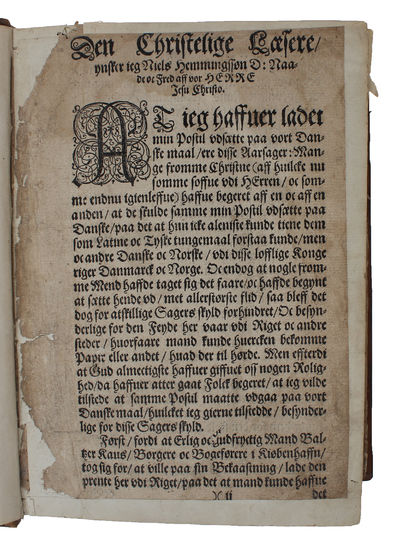 Den Christelige Læsere/
ynsker ieg Niels Hemmingsson D: Naa-
de oc Fred aff vor HERRE
Jesu Christo.
AT ieg haffuer ladet
min Postil vdsætte paa vort Dan-
ske maal/ere disse Aarsager: Man-
ge fromme Christne (aff huilcke nu
somme soffue vdi HErren/oc som-
me endnu igienleffue) haffue begeret aff en oc aff en
anden/at de skulde samme min Postil vdsætte paa
Danske/paa det at hun icke aleniste kunde tiene dem
som Latine oc Tyske tungemaal forstaa kunde/men
oc andre Danske oc Norske/vdi disse lofflige Konge
riger Danmarck oc Norge. Oc endog at nogle from-
me Mend haffde taget sig det faare/oc haffde begynt
at sætte hende vd/met allerstørste flid/saa bleff det
dog for atskillige Sagers skyld forhindret/Oc besyn-
derlige for den Feyde her vaar vdi Riget oc andre
steder/huorfaare mand kunde huercken bekomme
Papir eller andet/huad der til hørde. Men effterdi
at Gud almectigste haffuer giffuet oss nogen Rolig-
hed/da haffuer atter gaat Folck begeret/at ieg vilde
tilstede at samme Postil maatte vdgaa paa vort
Danske maal/huilcket ieg gierne tilstedde/besynder-
lige for disse Sagers skyld.
Først/fordi at Erlig oc Gudfryctig Mand Bal-
tzer Kaus/Borgere oc Bogeførere i Kiøbenhaffn/
tog sig for/at ville paa sin Bekaastning/lade den
prente her vdi Riget/paa det at mand kunde haffue
)( ij det